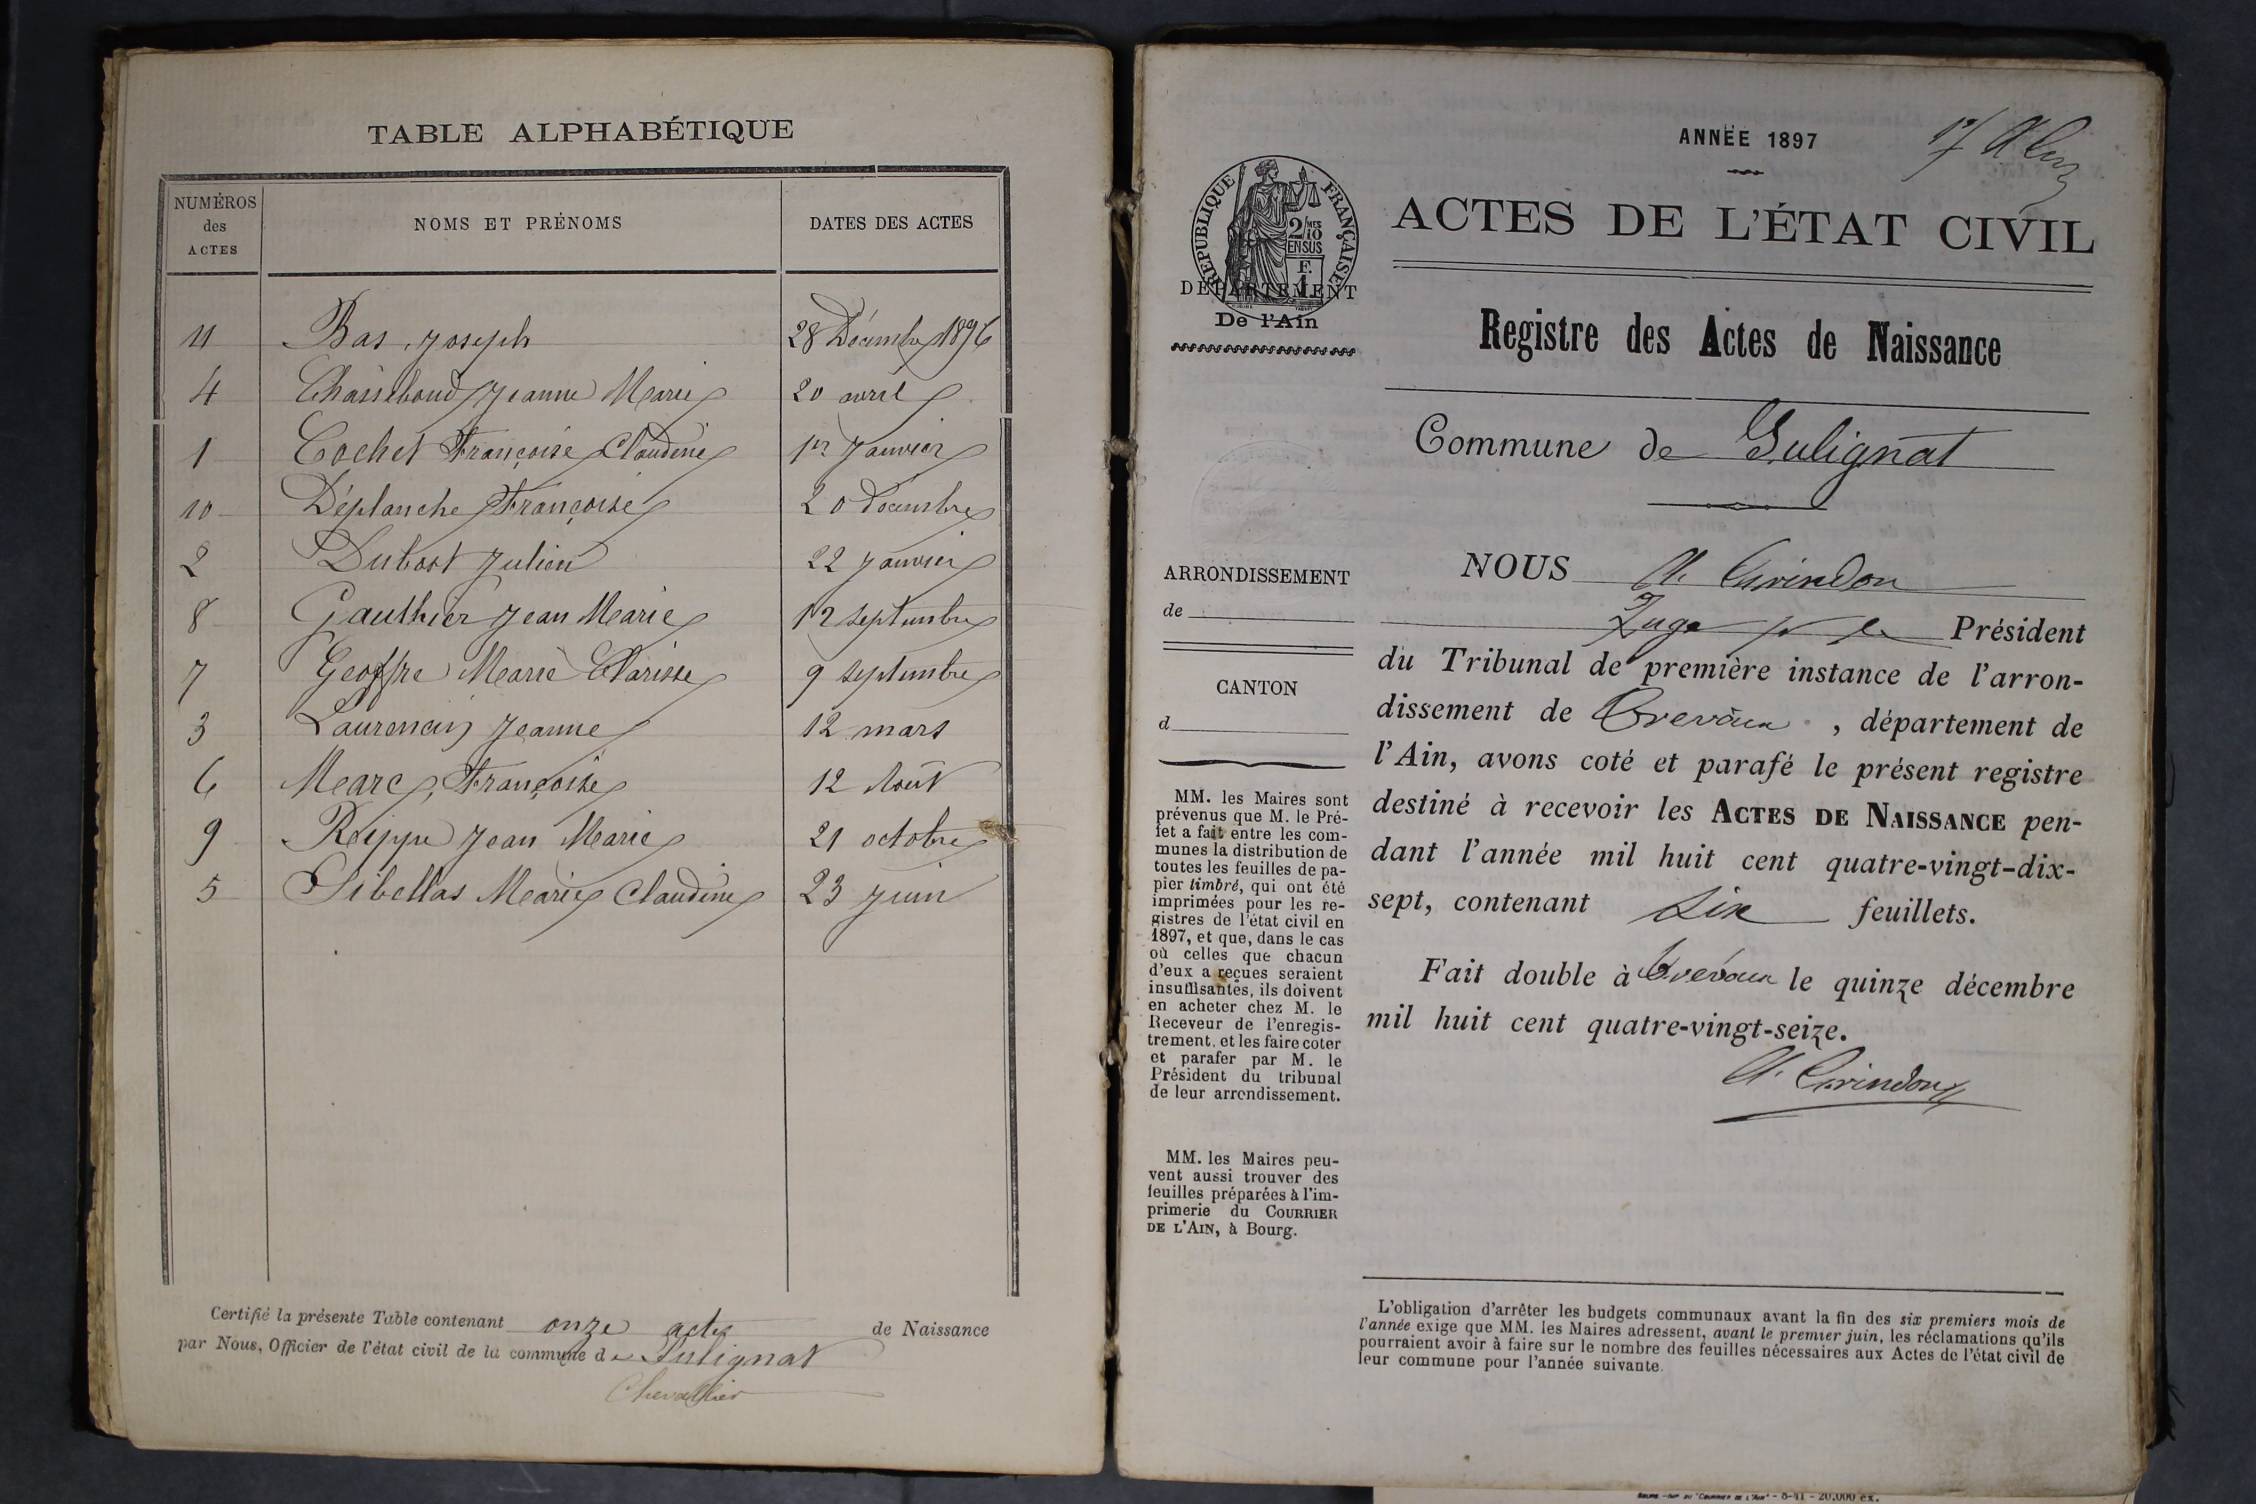 TABLE ALPHABÉTIQUE
NUMÉROS des ACTES NOMS ET PRÉNOMS DATES DES ACTES
11 Bas, Joseph 28 Décembre 1896
4 Jeanne Marie 20 avril
1 Cochet Françoise Claudine 1er Janvier
10 Déplanche Françoise 20 Décembre
2 Dubost Julien 22 Janvier
8 Gauthier Jean Marie 12 septembre
7 Geoffre Marie Clarisse 9 septembre
3 Laurencin Jeanne 12 mars
6 Marc, Françoise 12 Août
9 Reippe Jean Marie 21 octobre
5 Sibellas Marie Claudine 23 Juin
Certifié la présente Table contenant onze actes de Naissance
par Nous, Officier de l'état civil de la commune de Sulignat
Chevallier
ANNÉE 1897
RÉPUBLIQUE FRANÇAISE
2/10MES
EN SUS
F.
1
ACTES DE L'ÉTAT CIVIL
DÉPARTEMENT
De l'Ain
Registre des Actes de Naissance
Commune de Sulignat
ARRONDISSEMENT
de
CANTON
d
MM. les Maires sont
prévenus que M. le Pré-
fet a fait entre les com-
munes la distribution de
toutes les feuilles de pa-
pier timbré, qui ont été
imprimées pour les re-
gistres de l'état civil en
1897, et que, dans le cas
où celles que chacun
d'eux a reçues seraient
insuffisantes, ils doivent
en acheter chez M. le
Receveur de l'enregis-
trement, et les faire coter
et parafer par M. le
Président du tribunal
de leur arrondissement.
MM. les Maires peu-
vent aussi trouver des
feuilles préparées à l'im-
primerie du COURRIER
DE L'AIN, à Bourg.
NOUS
Juge Président
du Tribunal de première instance de l'arron-
dissement de Trevoux, département de
l'Ain, avons coté et parafé le présent registre
destiné à recevoir les ACTES DE NAISSANCE pen-
dant l'année mil huit cent quatre-vingt-dix-
sept, contenant six feuillets.
Fait double à Trevoux le quinze décembre
mil huit cent quatre-vingt-seize.
L'obligation d'arrêter les budgets communaux avant la fin des six premiers mois de
l'année exige que MM. les Maires adressent, avant le premier juin, les réclamations qu'ils
pourraient avoir à faire sur le nombre des feuilles nécessaires aux Actes de l'état civil de
leur commune pour l'année suivante.
BOURG.—IMP. DU "COURRIER DE L'AIN" - 8-41 - 20.000 ex.